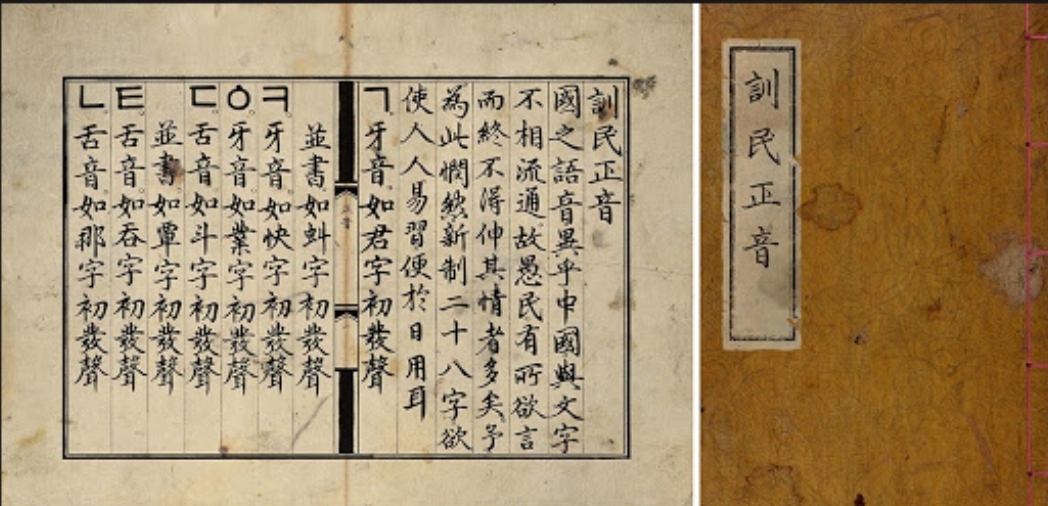 訓民正音
國之語音異乎中國與文字
不相流通故愚民有所欲言
而終不得伸其情者多矣予
為此憫然新制二十八字欲
使人人易習便於日用耳
ㄱ牙音如君字初發聲
並書如虯字初發聲
ㅋ牙音如快字初發聲
ㆁ牙音如業字初發聲
ㄷ舌音如斗字初發聲
並書如覃字初發聲
ㅌ舌音如呑字初發聲
ㄴ舌音如那字初發聲
訓民正音